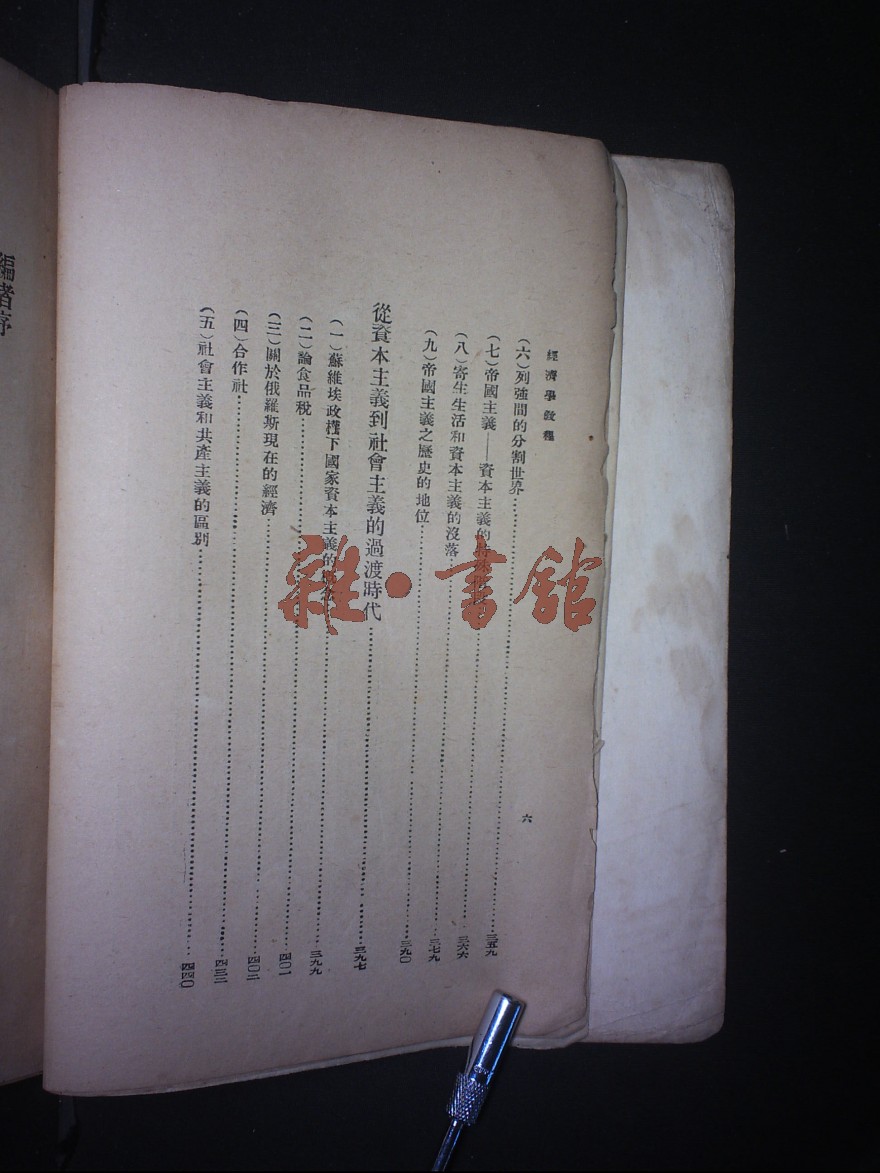 經濟學教程
六
(六)列強間的分割世界……三五九
(七)帝國主義——資本主義的特殊……三六六
(八)寄生生活和資本主義的沒落……三七九
(九)帝國主義之歷史的地位……三九〇
從資本主義到社會主義的過渡時代……三九七
(一)蘇維埃政權下國家資本主義的……三九九
(二)論食品稅……四〇一
(三)關於俄羅斯現在的經濟……四〇三
(四)合作社……四三三
(五)社會主義和共產主義的區別……四四〇
編者序
雜·書館